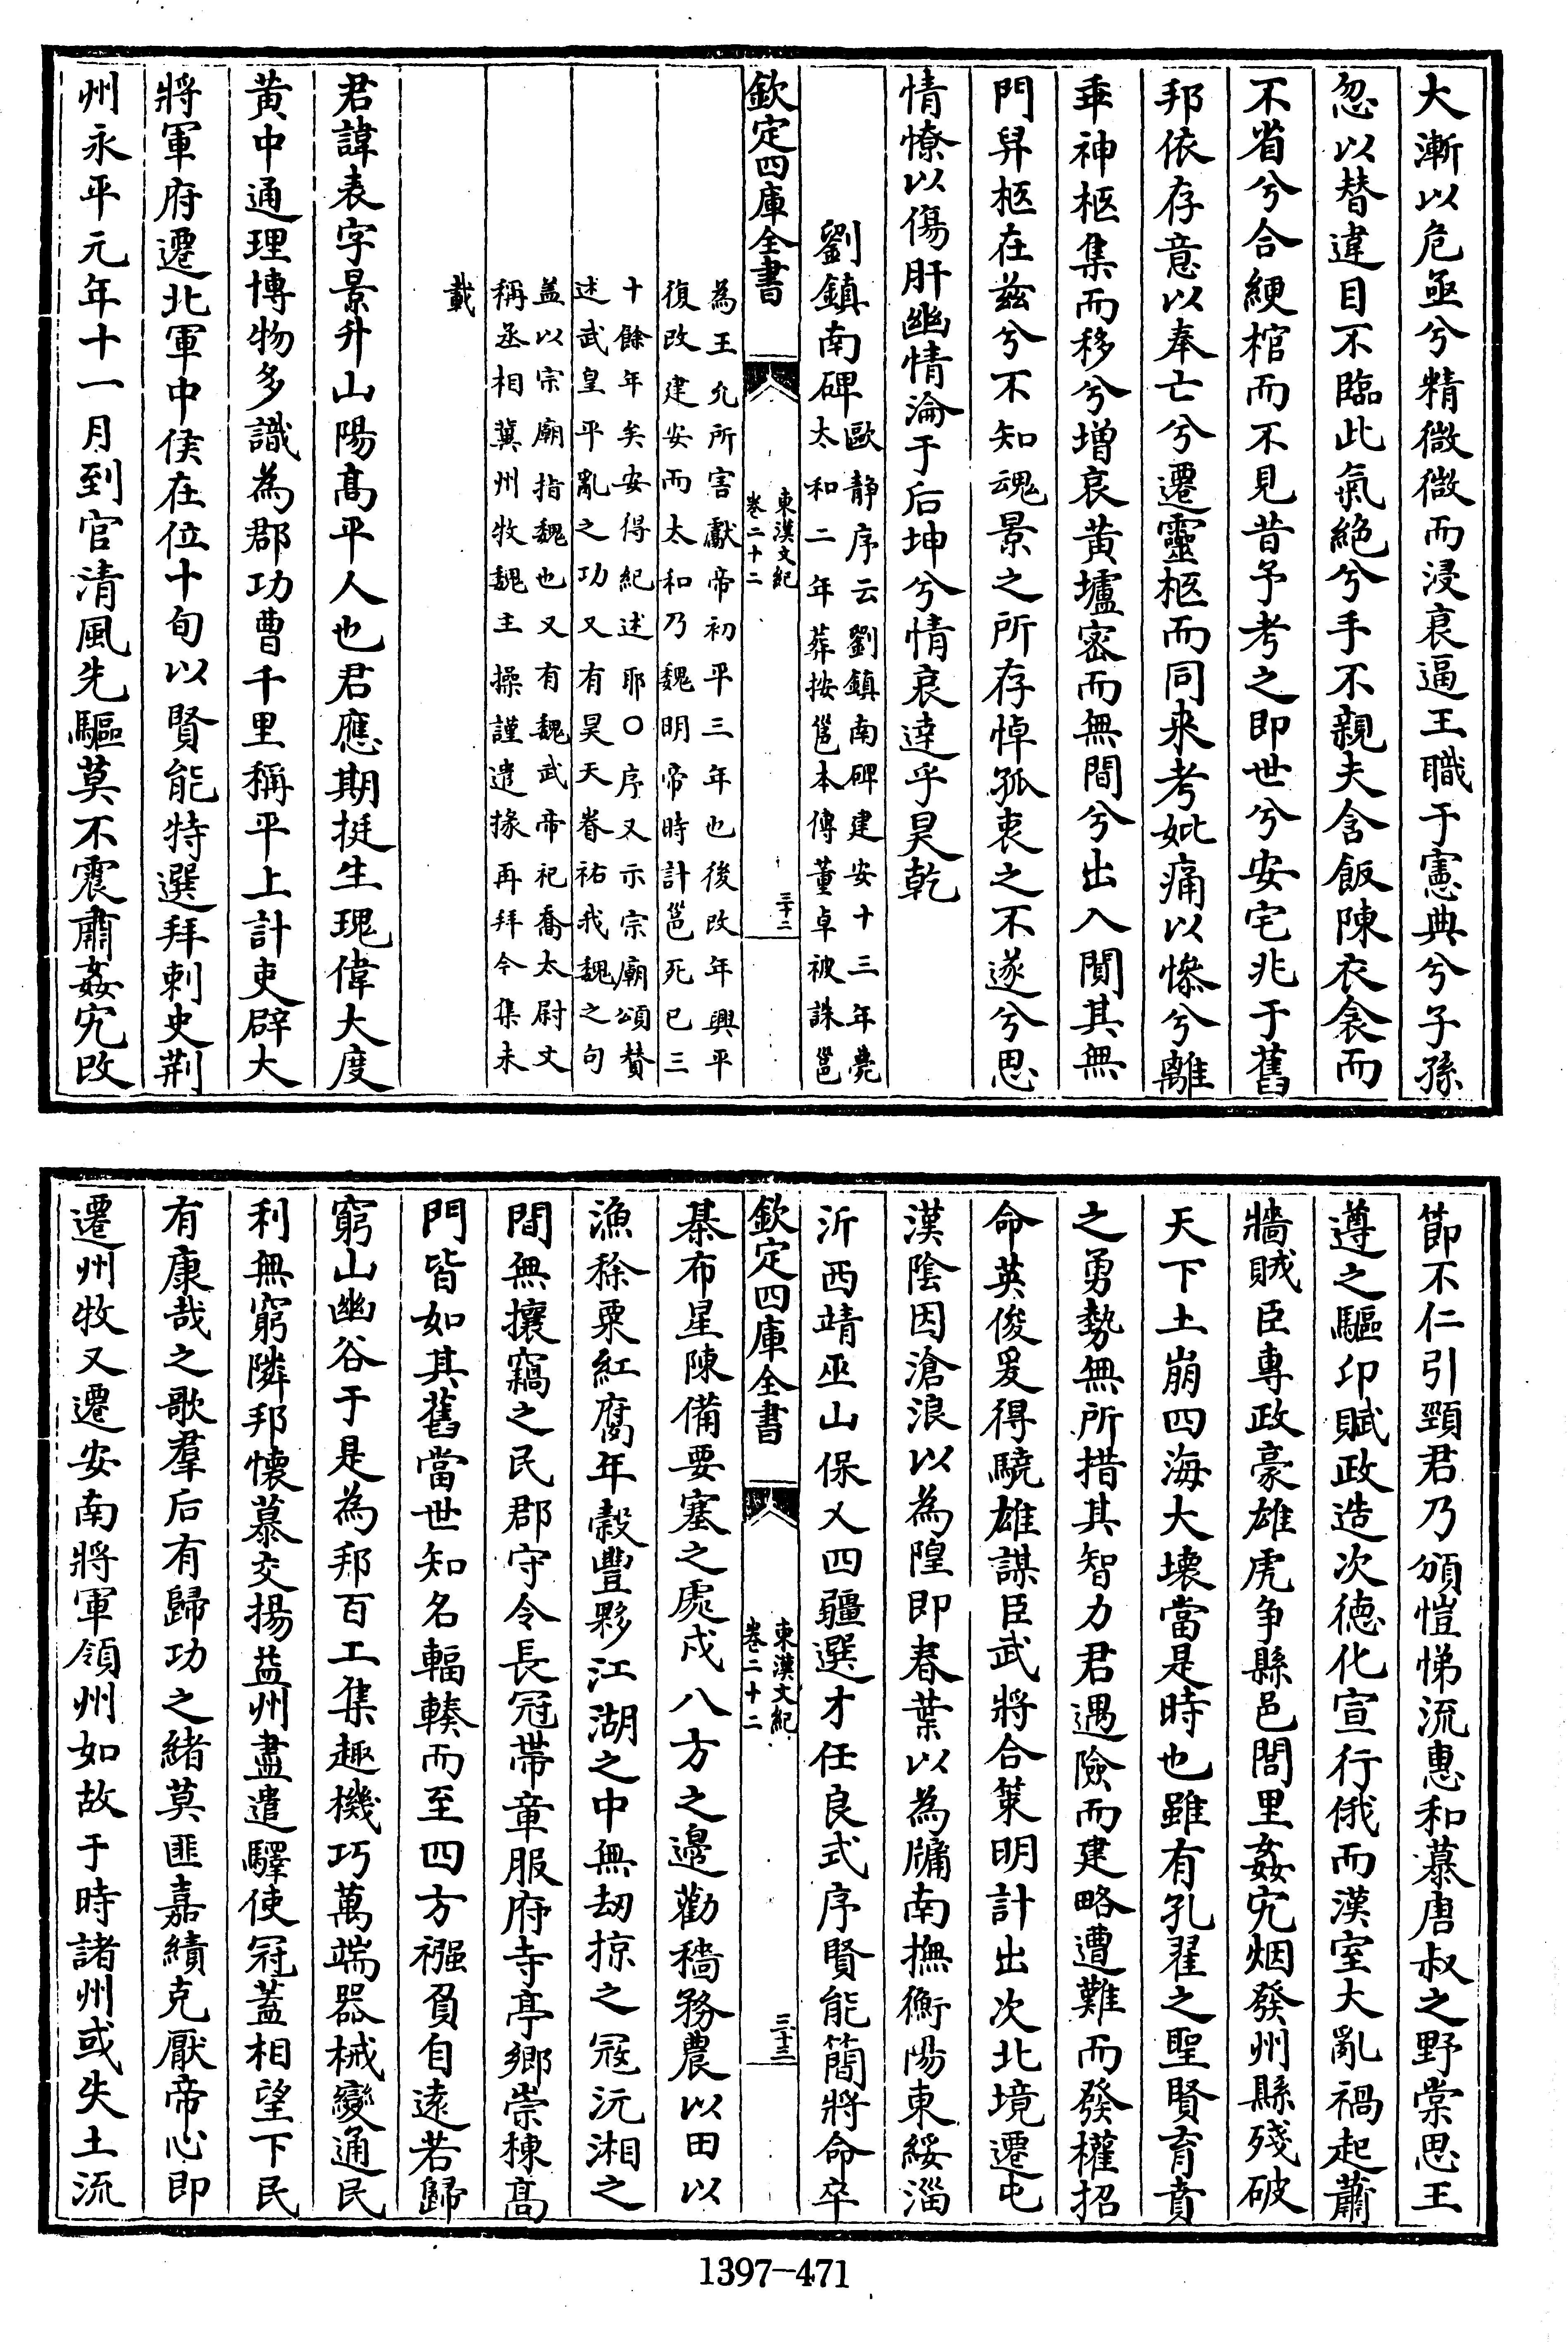 大漸以危亟兮精微微而浸衰逼王職于憲典兮子孫
忽以替違目不臨此氣絶兮手不親夫含飯陳衣衾而
不省兮合綆棺而不見昔予考之即世兮安宅兆于舊
邦依存意以奉亡兮遷靈柩而同来考妣痛以慘兮離
乖神柩集而移兮增哀黃壚密而無間兮出入閴其無
門舁柩在兹兮不知魂景之所存悼孤衷之不遂兮思
情憭以傷肝幽情淪于后坤兮情哀達乎昊乾
劉鎮南碑歐静序云劉鎮南碑建安十三年薨
太和二年葬按邕本傳董卓被誅邕
欽定四庫全書
東漢文紀
卷二十二
三十二
為王允所害獻帝初平三年也後改年興平
復改建安而太和乃魏明帝時計邕死已三
十餘年矣安得紀述耶○序又示宗廟頌賛
述武皇平亂之功又有昊天眷祐我魏之句
盖以宗廟指魏也又有魏武帝祀喬太尉文
稱丞相冀州牧魏主操謹遣掾再拜今集未
載
君諱表字景升山陽髙平人也君應期挺生瑰偉大度
黃中通理博物多識為郡功曹千里稱平上計吏辟大
將軍府遷北軍中侯在位十旬以賢能特選拜刺史荆
州永平元年十一月到官清風先驅莫不震肅姦宄改
節不仁引頸君乃頒愷悌流惠和慕唐叔之野棠思王
遵之驅卬賦政造次徳化宣行俄而漢室大亂禍起蕭
牆賊臣專政豪雄虎争縣邑閭里姦宄烟發州縣殘破
天下土崩四海大壊當是時也雖有孔翟之聖賢育賁
之勇勢無所措其智力君遇險而建略遭難而發權招
命英俊爰得驍雄謀臣武將合策明計出次北境遷屯
漢陰因滄浪以為隍即春葉以為牗南撫衡陽東綏淄
沂西靖巫山保乂四疆選才任良式序賢能簡將命卒
欽定四庫全書
東漢文紀
卷二十二
三十三
棊布星陳備要塞之處戍八方之邉勸穡務農以田以
漁稌粟紅腐年榖豐夥江湖之中無刼掠之冦沅湘之
間無攘竊之民郡守令長冠帶章服府寺亭鄉崇棟髙
門皆如其舊當世知名輻輳而至四方襁負自逺若歸
窮山幽谷于是為邦百工集趣機巧萬端器械變通民
利無窮隣邦懐慕交揚益州盡遣驛使冠蓋相望下民
有康哉之歌羣后有歸功之緒莫匪嘉績克厭帝心即
遷州牧又遷安南將軍領州如故于時諸州或失土流
1397-471